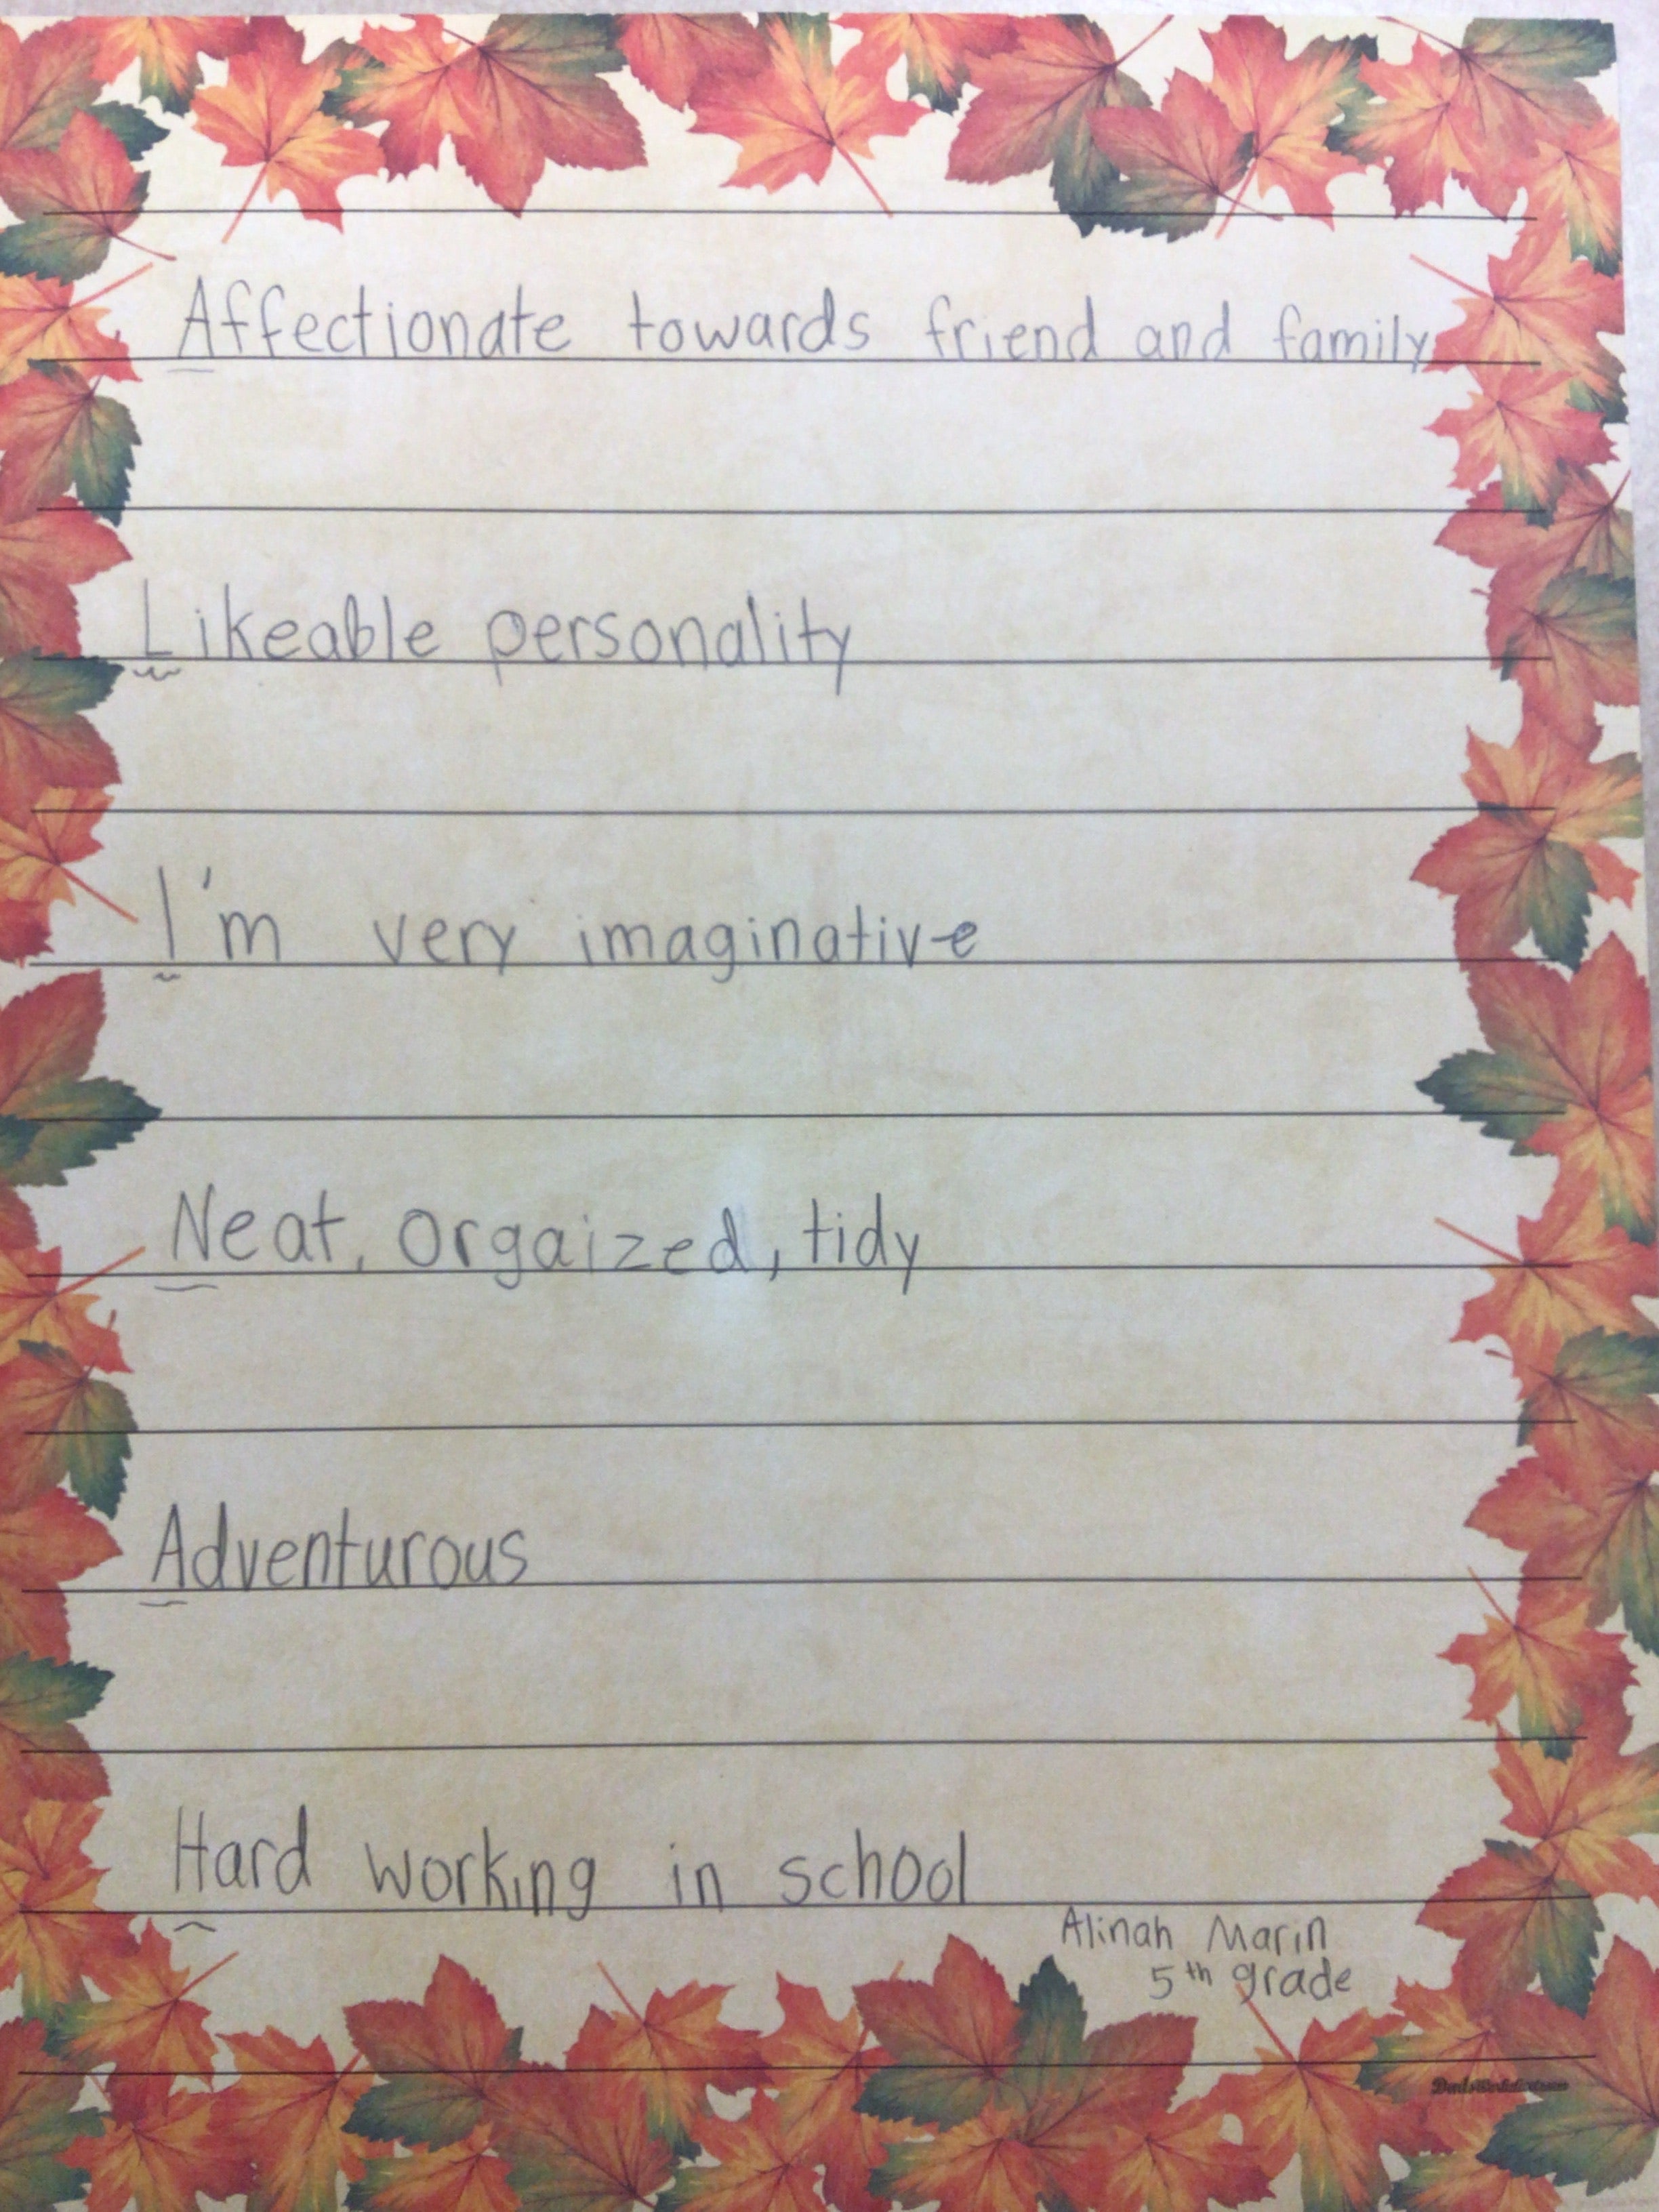 Affectionate towards friend and family
Likeable personality
I'm very imaginative
Neat, orgaized, tidy
Adventurous
Hard working in school
Alinah Marin
5th grade